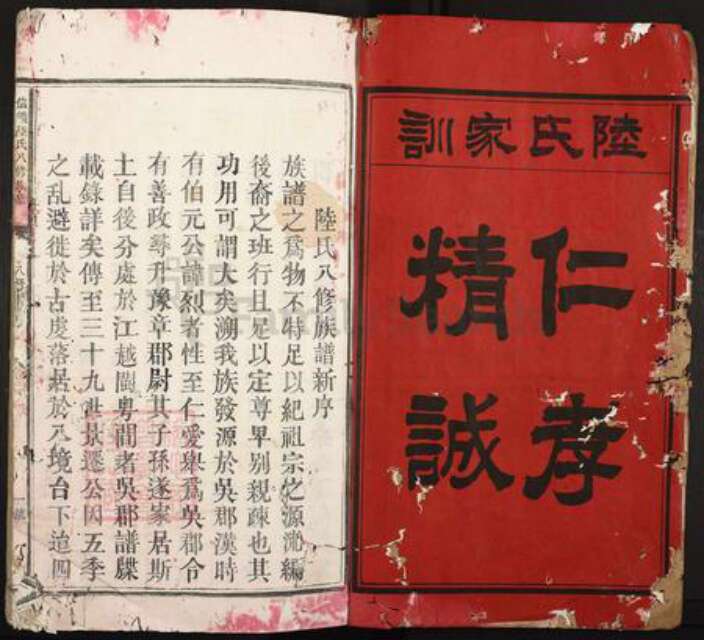 陸氏家訓
仁孝
精誠
陸氏八修族譜新序
族譜之爲物不特足以紀祖宗之源流編
後裔之班行且足以定尊卑别親疎也其
功用可謂大矣溯我族發源於吳郡漢時
有伯元公諱烈者性至仁愛舉爲吳郡令
有善政尋升豫章郡尉其子孫遂家居斯
土自後分處於江越閩粤間者吳郡譜牒
載錄詳矣傳至三十九世景遷公因五季
之乱避徙於古虔落居於八境台下迨四
陸氏八修